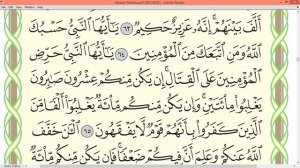 Mushaf Madinah.pdf (SECURED) - Adobe Reader
أَلَّفَ بَيْنَهُمْ إِنَّهُۥ عَزِيزٌ حَكِيمٌ ٦٣ يَـٰٓأَيُّهَا ٱلنَّبِىُّ حَسْبُكَ
ٱللَّهُ وَمَنِ ٱتَّبَعَكَ مِنَ ٱلْمُؤْمِنِينَ ٦٤ يَـٰٓأَيُّهَا ٱلنَّبِىُّ حَرِّضِ
ٱلْمُؤْمِنِينَ عَلَى ٱلْقِتَالِ إِن يَكُن مِّنكُمْ عِشْرُونَ صَـٰبِرُونَ
يَغْلِبُوا۟ مِا۟ئَتَيْنِ وَإِن يَكُن مِّنكُم مِّا۟ئَةٌ يَغْلِبُوٓا۟ أَلْفًا مِّنَ
ٱلَّذِينَ كَفَرُوا۟ بِأَنَّهُمْ قَوْمٌ لَّا يَفْقَهُونَ ٦٥ ٱلْـَٔـٰنَ خَفَّفَ
ٱللَّهُ عَنكُمْ وَعَلِمَ أَنَّ فِيكُمْ ضَعْفًا فَإِن يَكُن مِّنكُم مِّا۟ئَةٌ